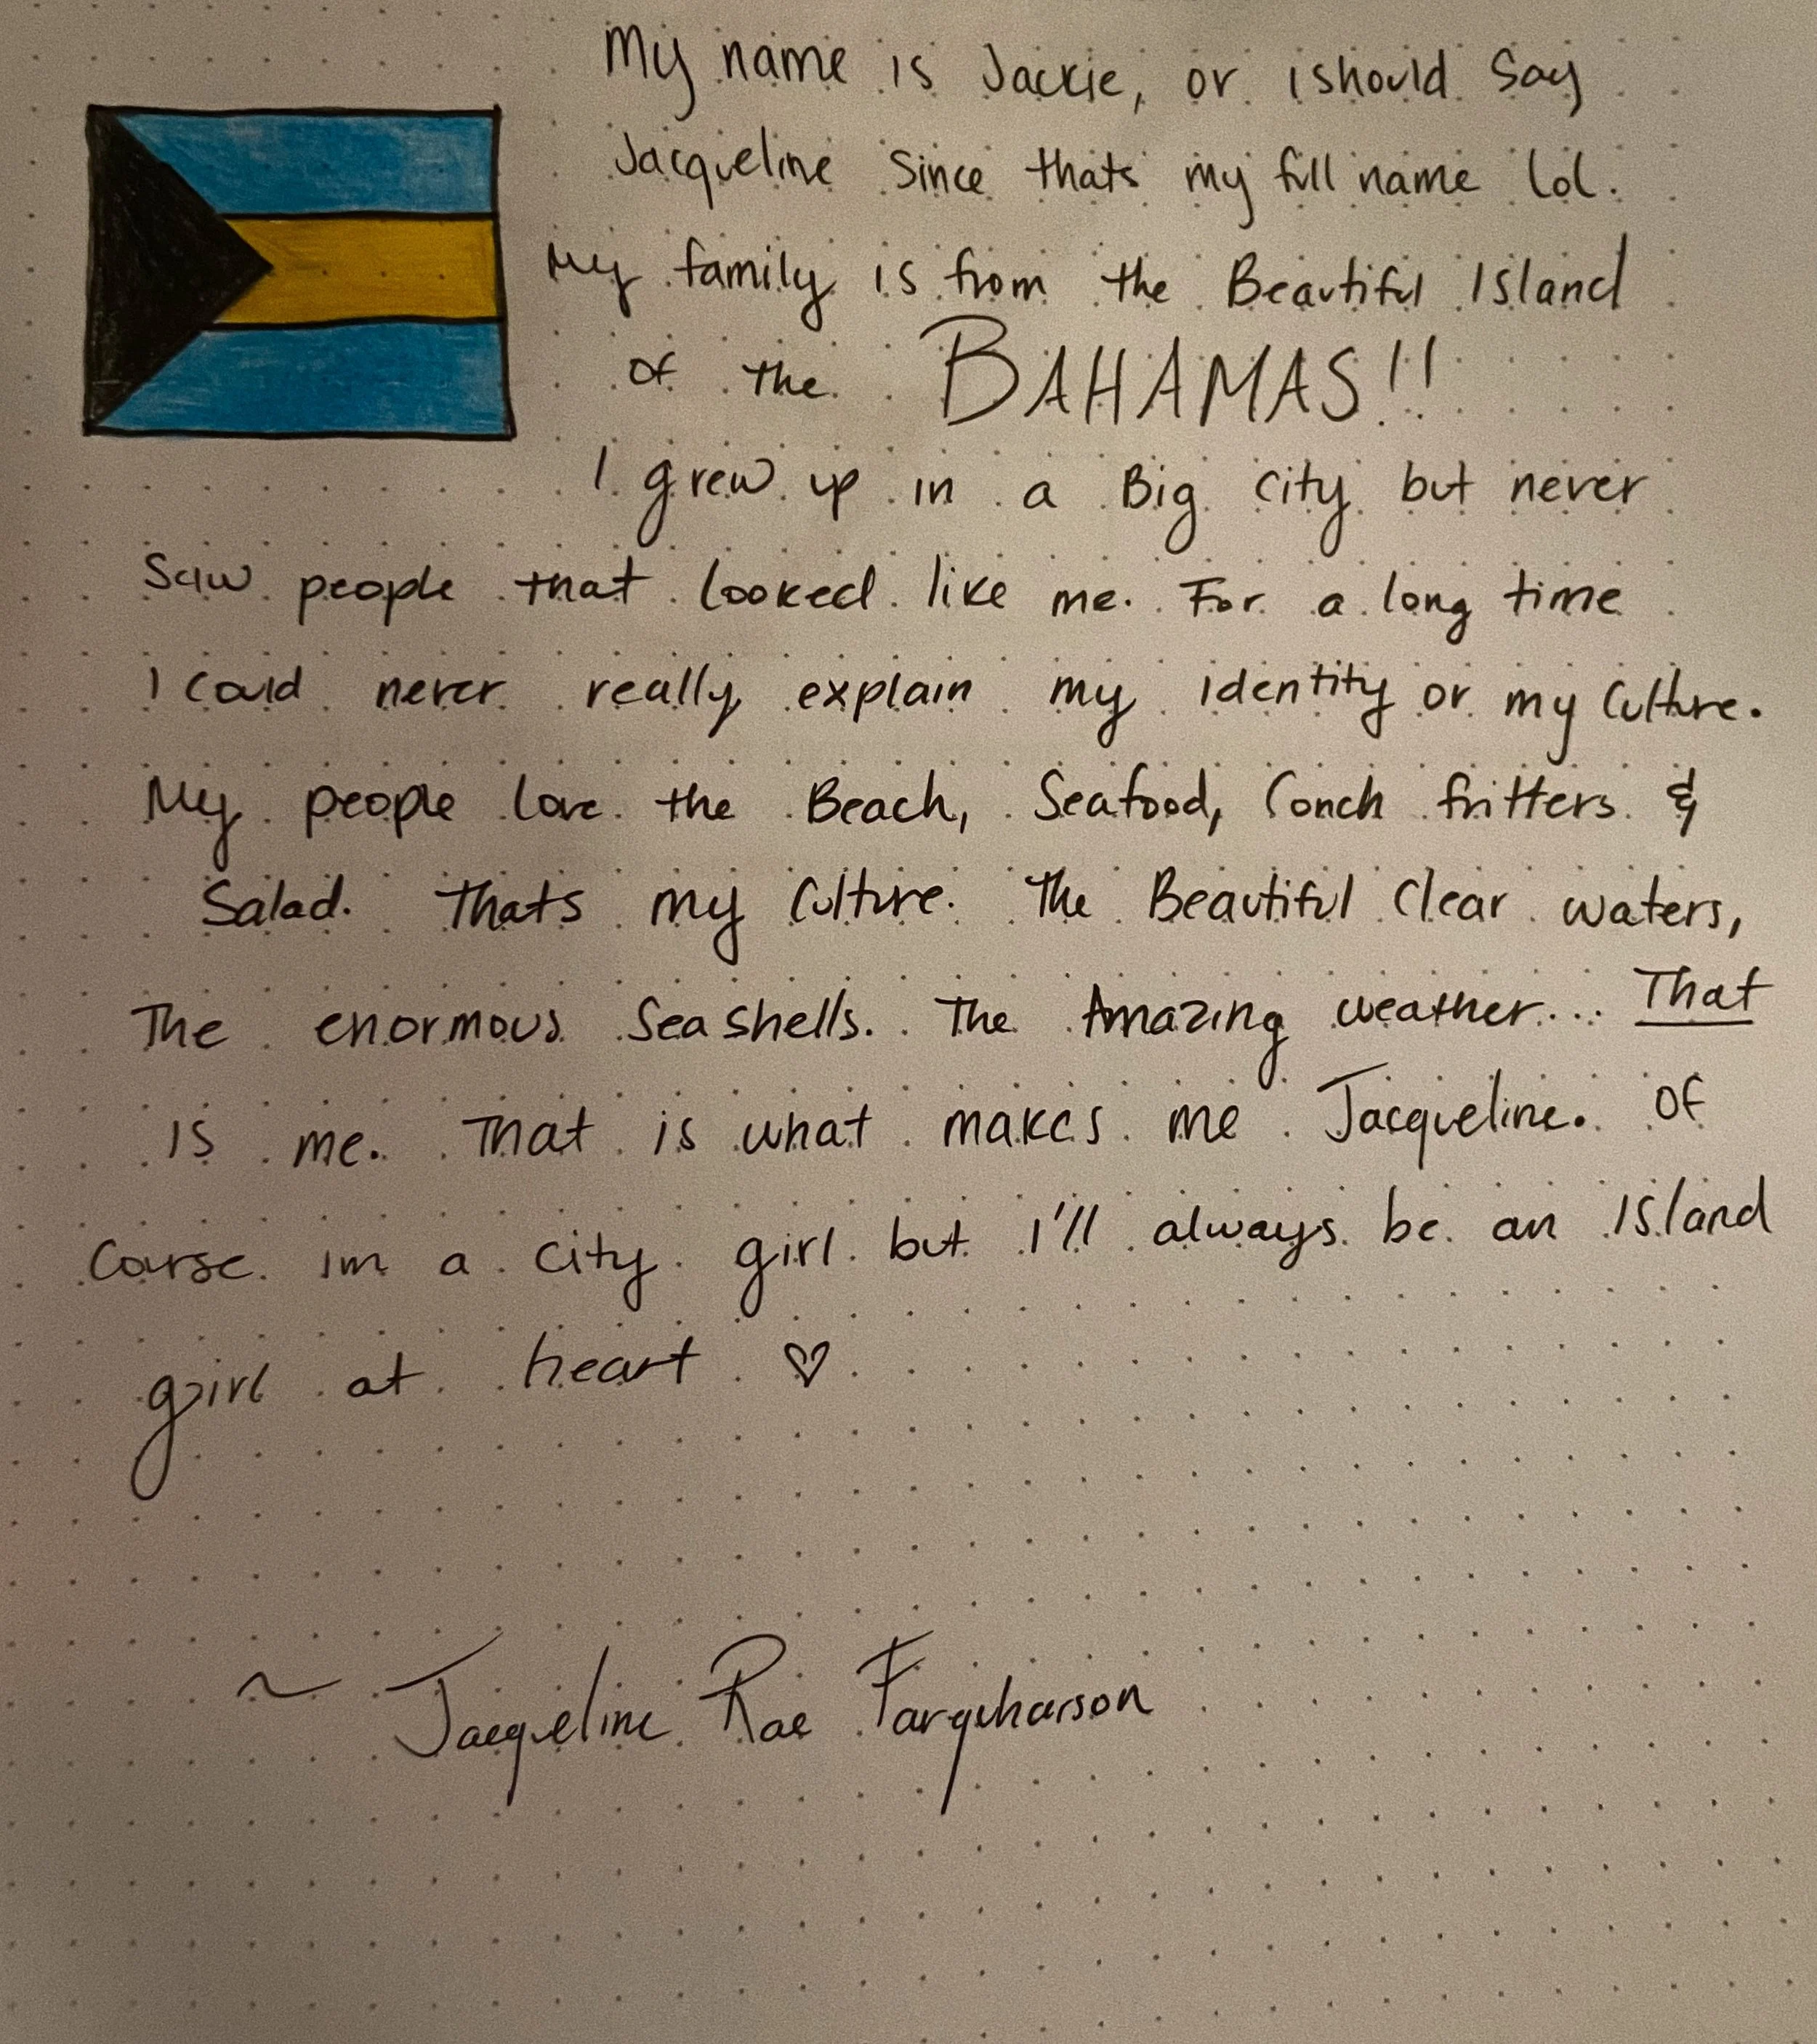 My name is Jackie, or i should say
Jacqueline since thats my full name lol.
My family is from the Beautiful Island
of the BAHAMAS!!
I grew up in a Big city but never
saw people that looked like me. For a long time
I could never really explain my identity or my culture.
My people love the Beach, Seafood, Conch fritters &
Salad. Thats my culture. The Beautiful Clear waters,
The enormous Sea shells. The Amazing weather... That
is me. That is what makes me Jacqueline. Of
Course im a city girl but I'll always be an Island
girl at heart ♡
~ Jacqueline Rae Farquharson